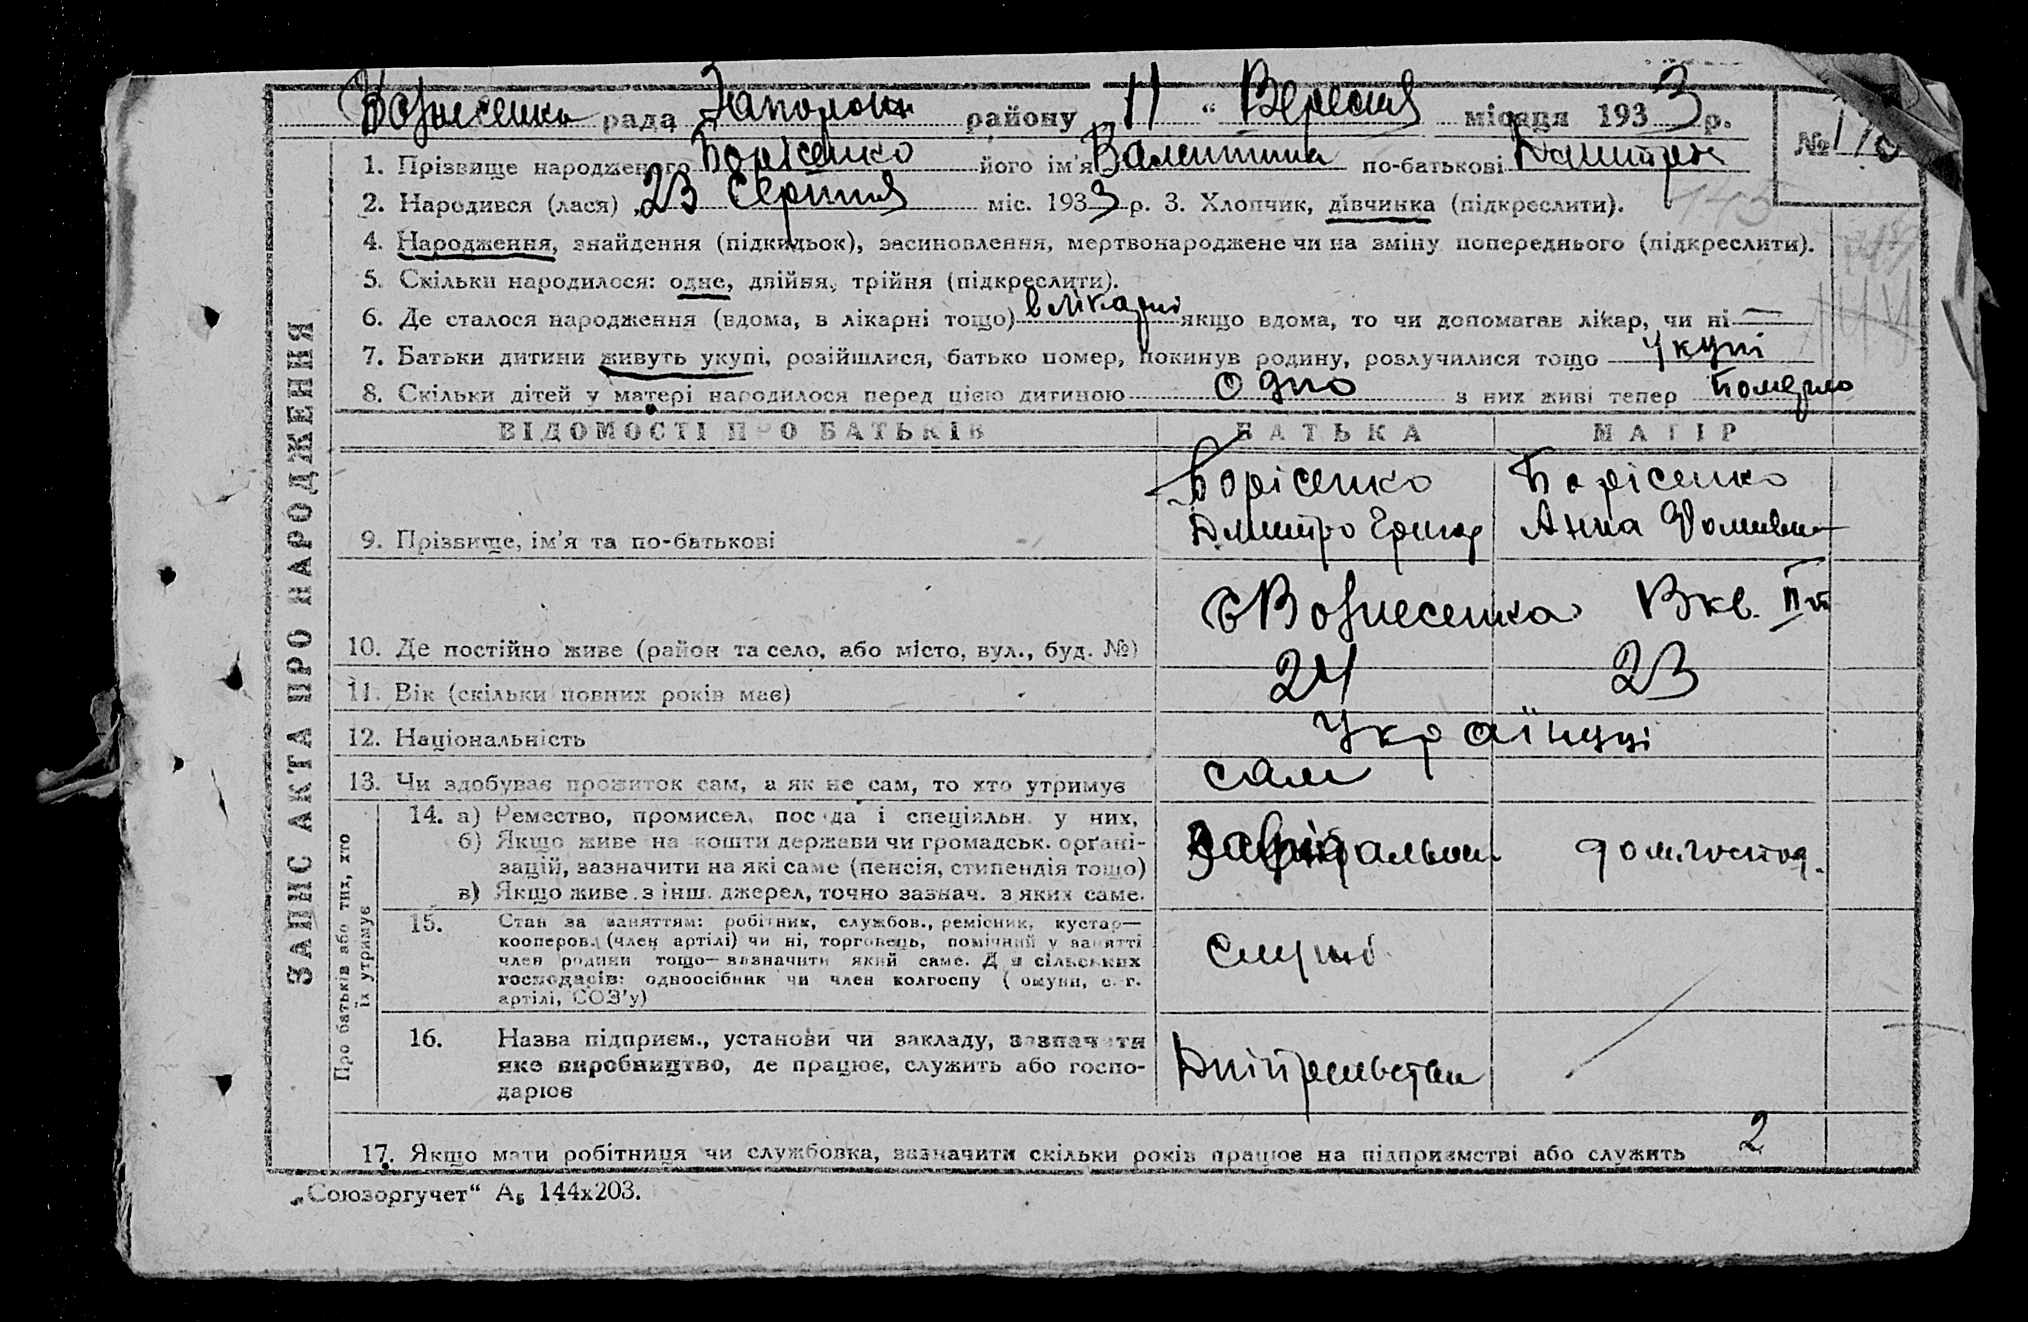 Вознесенка рада Запорізьк району 11 “ Вересня місяця 1933 р.
№
1. Прізвище народженого Борісенко його ім'я Валентина по-батькові Дмитров
2. Народився (лася) 23 Серпня міс. 1933 р. 3. Хлопчик, дівчинка (підкреслити).
145
4. Народження, знайдення (підкидьок), засиновлення, мертвонароджене чи на зміну попереднього (підкреслити).
5. Скільки народилося: одне, двійня, трійня (підкреслити).
6. Де сталося народження (вдома, в лікарні тощо) в лікарні якщо вдома, то чи допомагав лікар, чи ні —
144
7. Батьки дитини живуть укупі, розійшлися, батько помер, покинув родину, розлучилися тощо Укупі
8. Скільки дітей у матері народилося перед цією дитиною одно з них живі тепер Померло
ВІДОМОСТІ ПРО БАТЬКІВ БАТЬКА МАТІР
Борісенко Борісенко
Дмитро Григор Анна
9. Прізвище, ім'я та по-батькові
с Вознесенка
10. Де постійно живе (район та село, або місто, вул., буд. №)
11. Вік (скільки повних років має) 24 23
12. Національність Українці
13. Чи здобуває прожиток сам, а як не сам, то хто утримує сам
14. а) Ремество, промисел, посада і спеціяльн. у них,
б) Якщо живе на кошти держави чи громадськ. орґані-
зацій, зазначити на які саме (пенсія, стипендія тощо) дом.господ.
в) Якщо живе з інш. джерел, точно зазнач. з яких саме.
15. Стан за заняттям: робітник, службов., ремісник, кустар—
кооперов. (член артілі) чи ні, торговець, помічний у занятті
член родини тощо—зазначити який саме. Для сільських
господарів: одноосібник чи член колгоспу (комуни, с.-г.
артілі, СОЗ'у)
16. Назва підприєм., установи чи закладу, зазначити
яке виробництво, де працює, служить або госпо-
дарює
17. Якщо мати робітниця чи службовка, зазначити скільки років працює на підприємстві або служить 2
ЗАПИС АКТА ПРО НАРОДЖЕННЯ
Про батьків або тих, хто
їх утримує
„Союзоргучет“ А₅ 144х203.